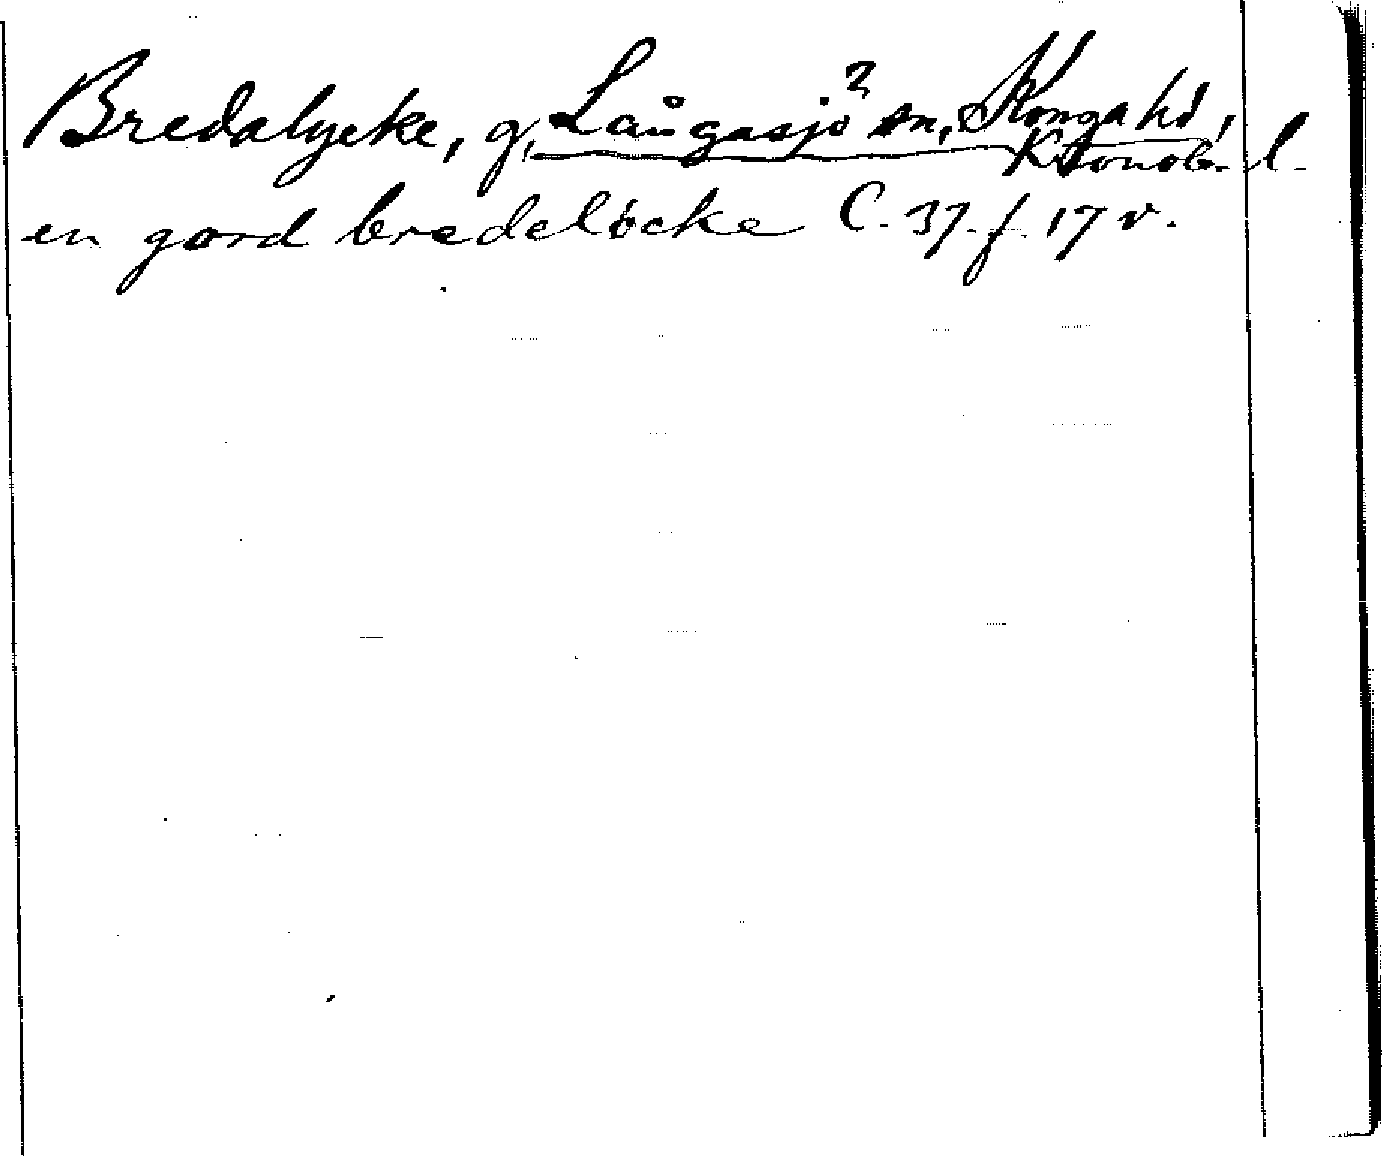 Bredalycke, g, Långasjö² sn, Konga hd,
Kronob. l.
en gard bredeløcke C. 37. f. 17 v.